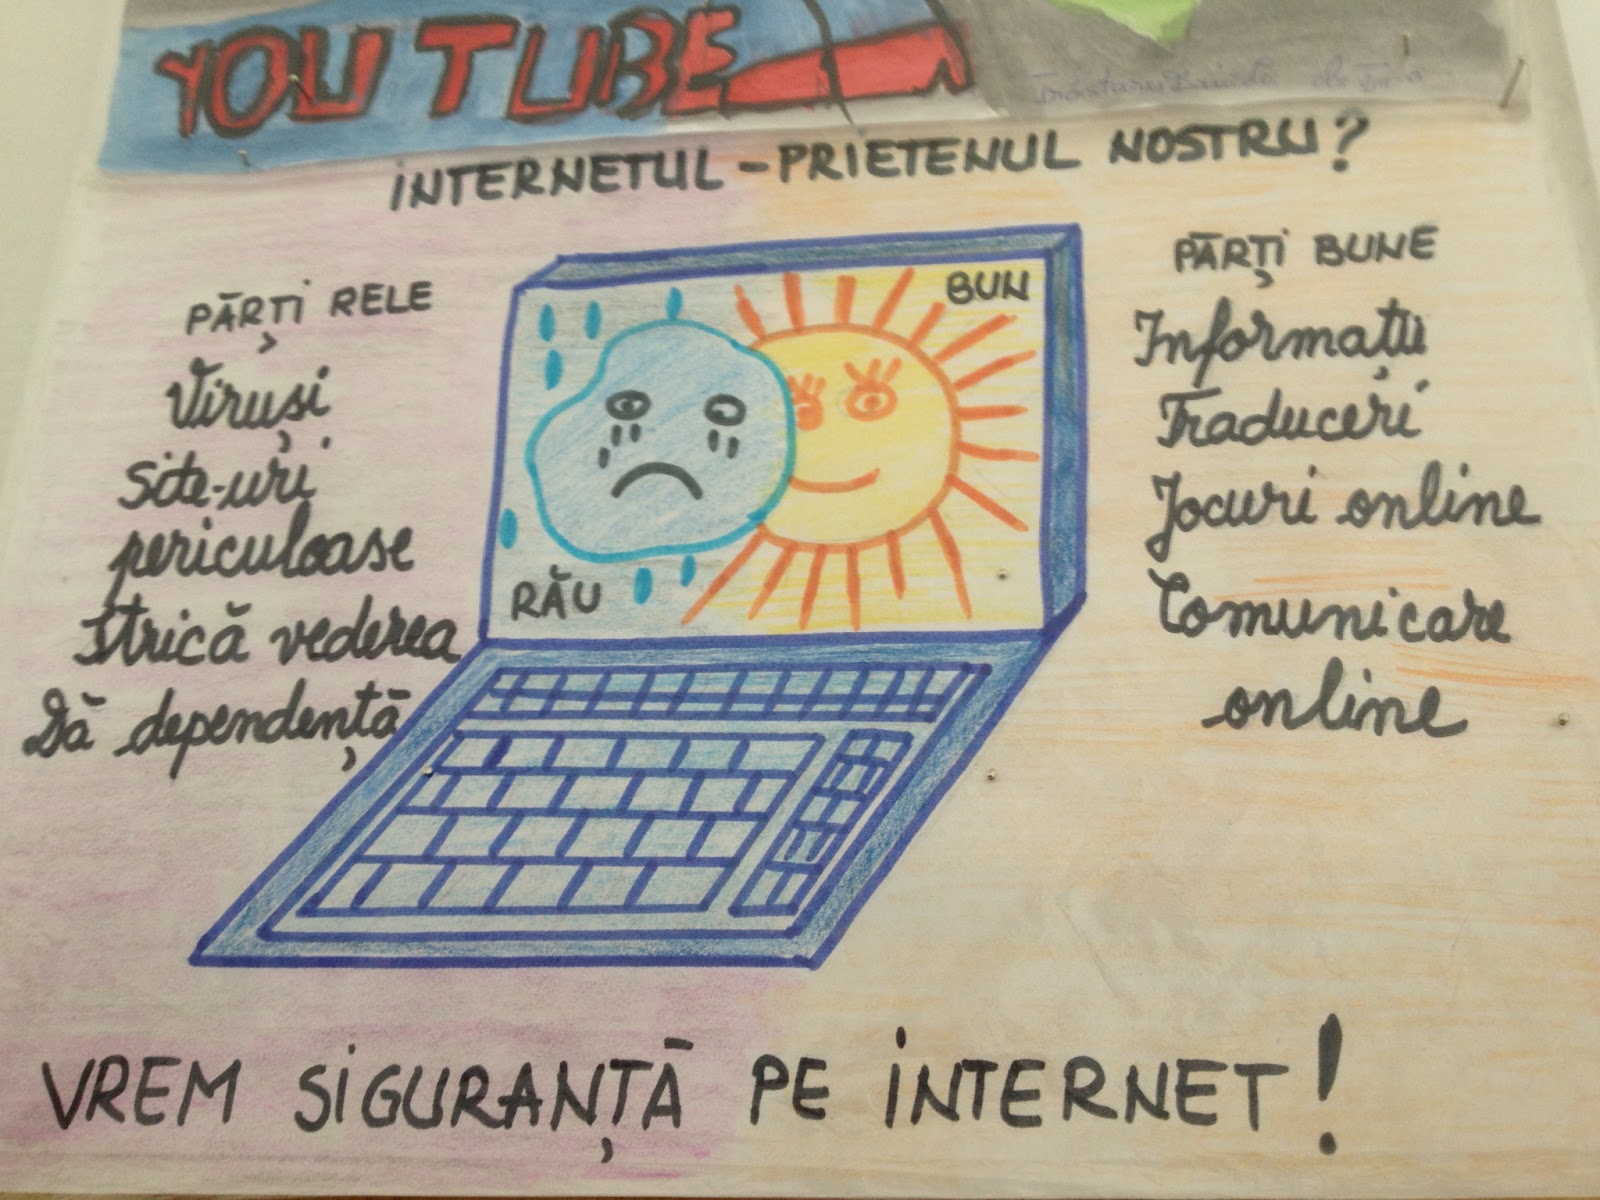 YOUTUBE
INTERNETUL - PRIETENUL NOSTRU?
PĂRȚI RELE
Viruși
Site-uri
periculoase
Strică vederea
Dă dependență
BUN
RĂU
PĂRȚI BUNE
Informații
Traduceri
Jocuri online
Comunicare
online
VREM SIGURANȚĂ PE INTERNET!